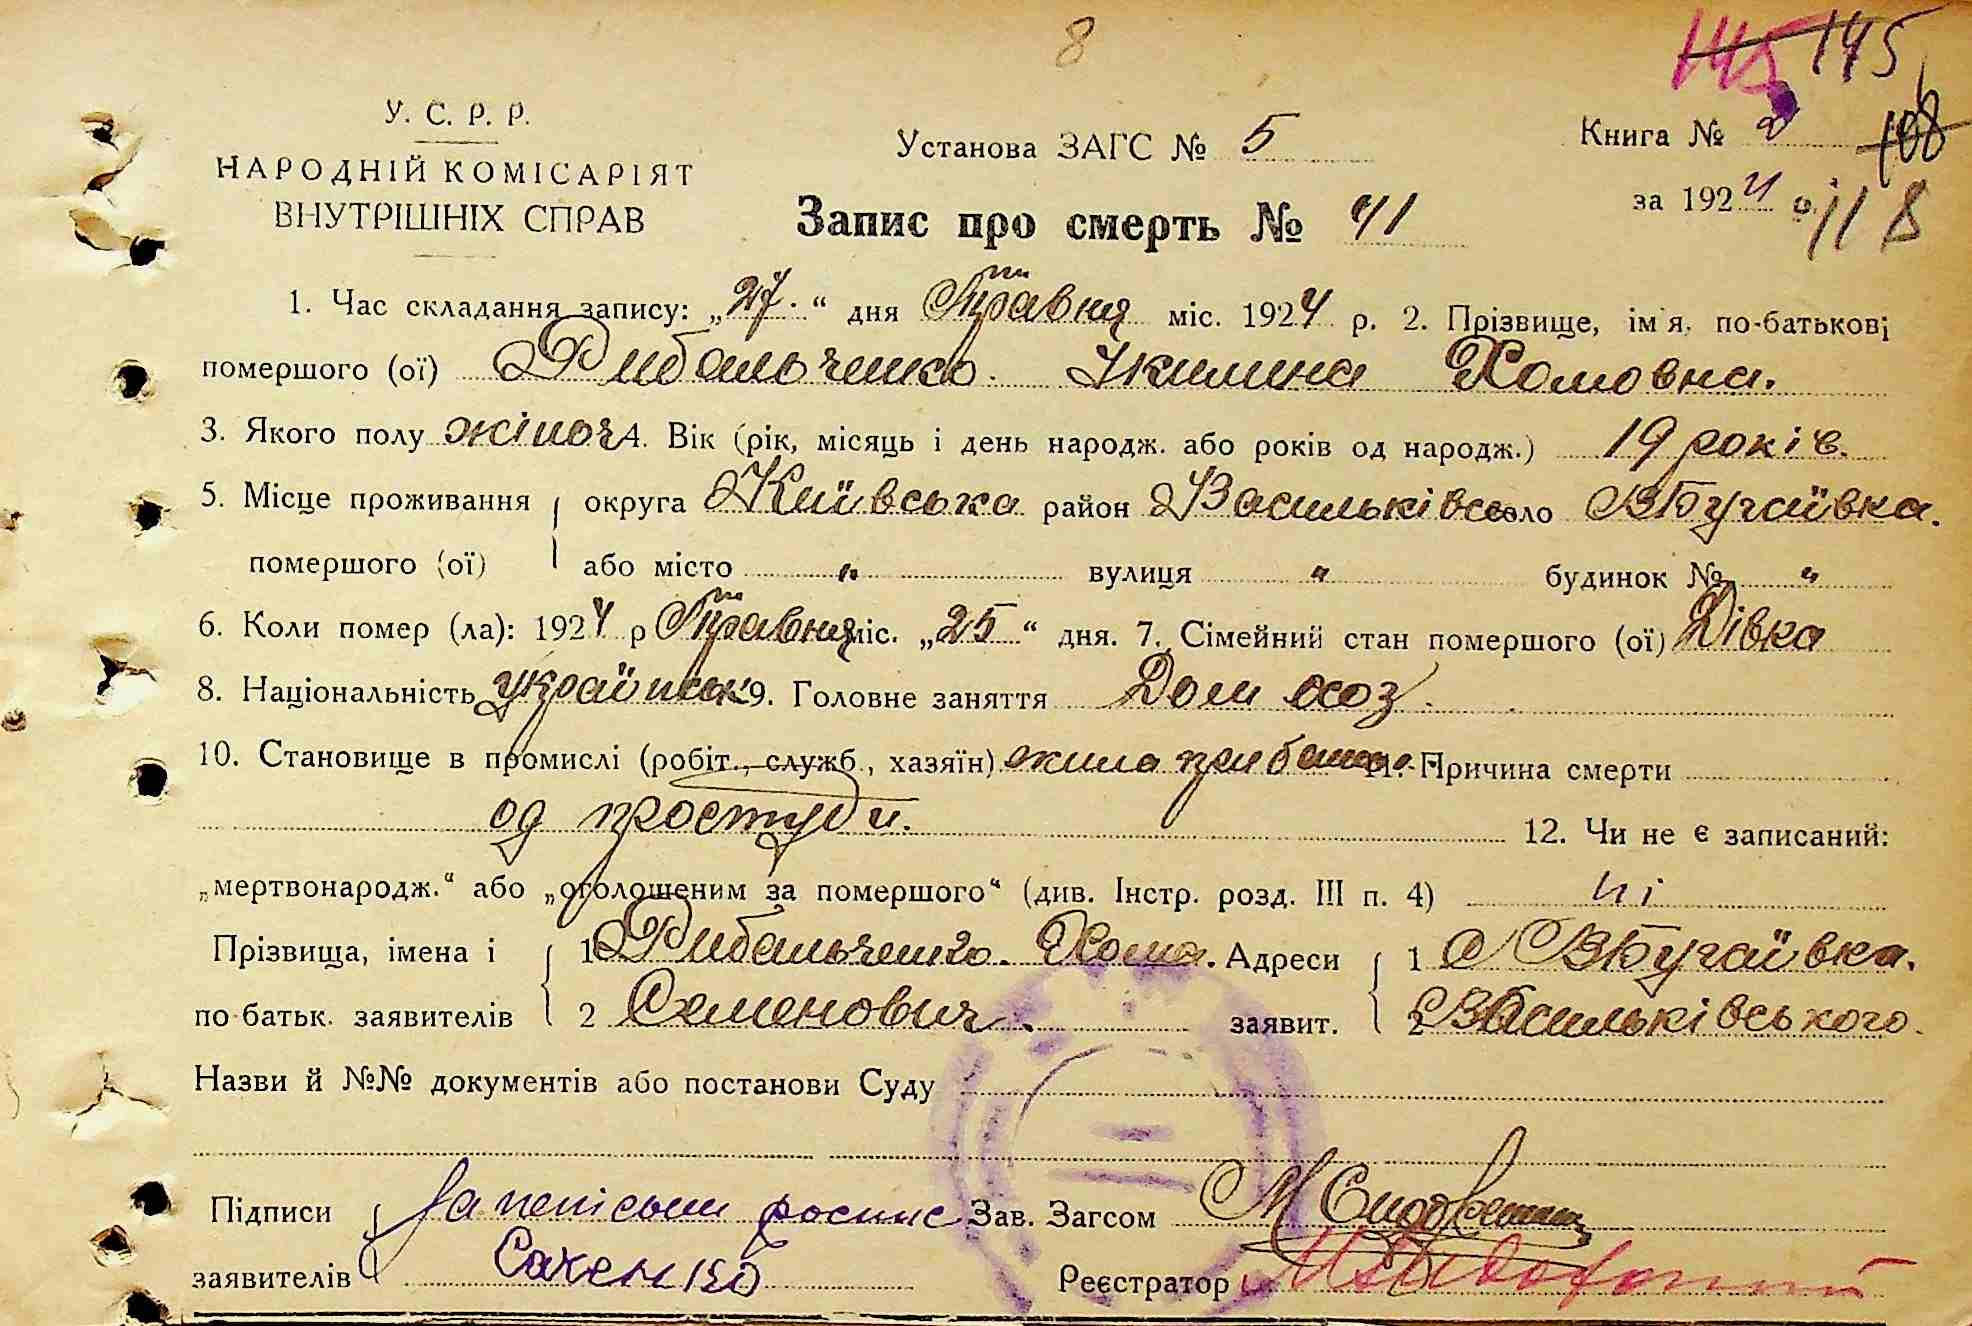 8
145 145
У. С. Р. Р.
НАРОДНІЙ КОМІСАРІЯТ
ВНУТРІШНІХ СПРАВ
Установа ЗАГС № 5
Книга № 2 108
за 1924 р. 118
Запис про смерть № 41
1. Час складання запису: „27.“ дня Травня міс. 1924 р. 2. Прізвище, ім'я, по-батькові
помершого (ої) Рибальченко. Укилина Хомовна.
3. Якого полу жіноч 4. Вік (рік, місяць і день народж. або років од народж.) 19 років.
5. Місце проживання округа Київська район Васильківськ село ВБугаївка.
помершого (ої) або місто „ вулиця „ будинок № „
6. Коли помер (ла): 1924 р Травня міс. „25“ дня. 7. Сімейний стан помершого (ої) Дівка
8. Національність українськ 9. Головне заняття Дом хоз.
10. Становище в промислі (робіт., служб., хазяїн) жила при 11. Причина смерти
од простуди.
12. Чи не є записаний:
„мертвонародж.“ або „оголошеним за помершого“ (див. Інстр. розд. III п. 4) ні
Прізвища, імена і 1 Рибальченко. Хома. Адреси 1 С ВБугаївка.
по батьк. заявителів 2 Семенович. заявит. 2 Васильківського.
Назви й №№ документів або постанови Суду
Підписи За неписьм росписс Зав. Загсом
заявителів Реєстратор